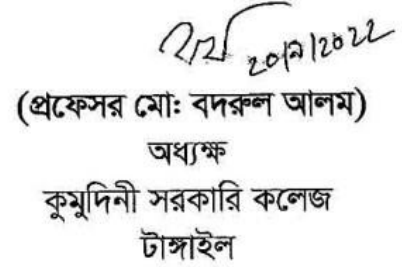 ২০/৯/২০২২
(প্রফেসর মোঃ বদরুল আলম)
অধ্যক্ষ
কুমুদিনী সরকারি কলেজ
টাঙ্গাইল